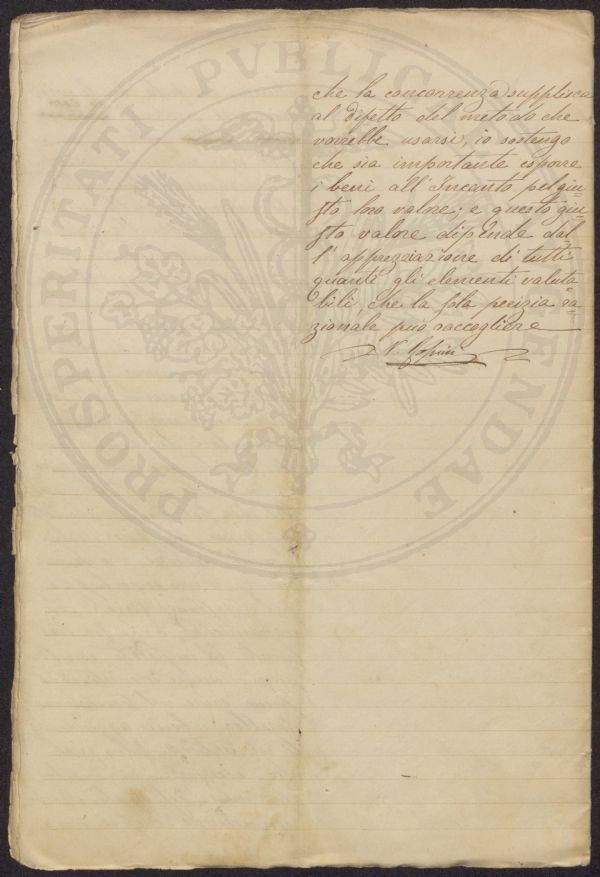 PROSPERITATI PVBLIC ENDAE
che la concorrenza supplisca
al difetto del metodo che
vorrebbe usarsi, io sostengo
che sia importante esporre
i beni all'Incanto pel giu-
sto loro valore; e questo giu-
sto valore dipende dal-
l'apprezziazione di tutti
quanti gli elementi valuta-
bili, che la sola perizia ra-
zionale può raccogliere